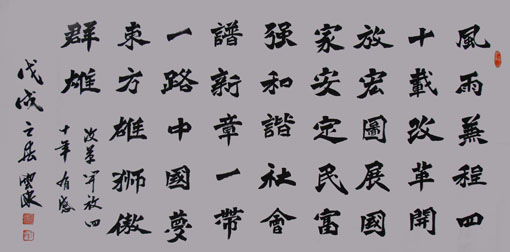 風雨兼程四
十載改革開
放宏圖展國
家安定民富
强和諧社會
譜新章一帶
一路中國夢
東方雄獅傲
群雄
改革开放四
十年有感
戊戌之春